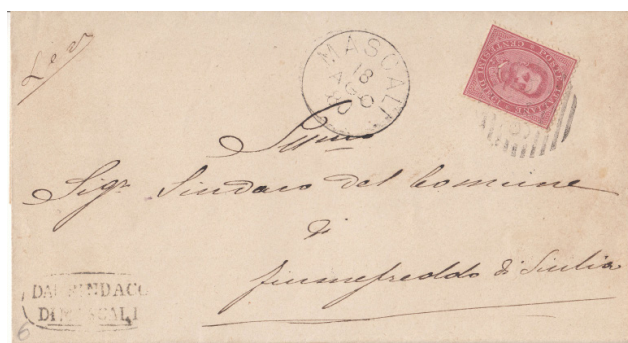 MASCALI
18
AGO
80
POSTE ITALIANE
Sigr Sindaco del Comune
di
fiumefreddo di Sicilia
DAL SINDACO
DI MASCALI
6